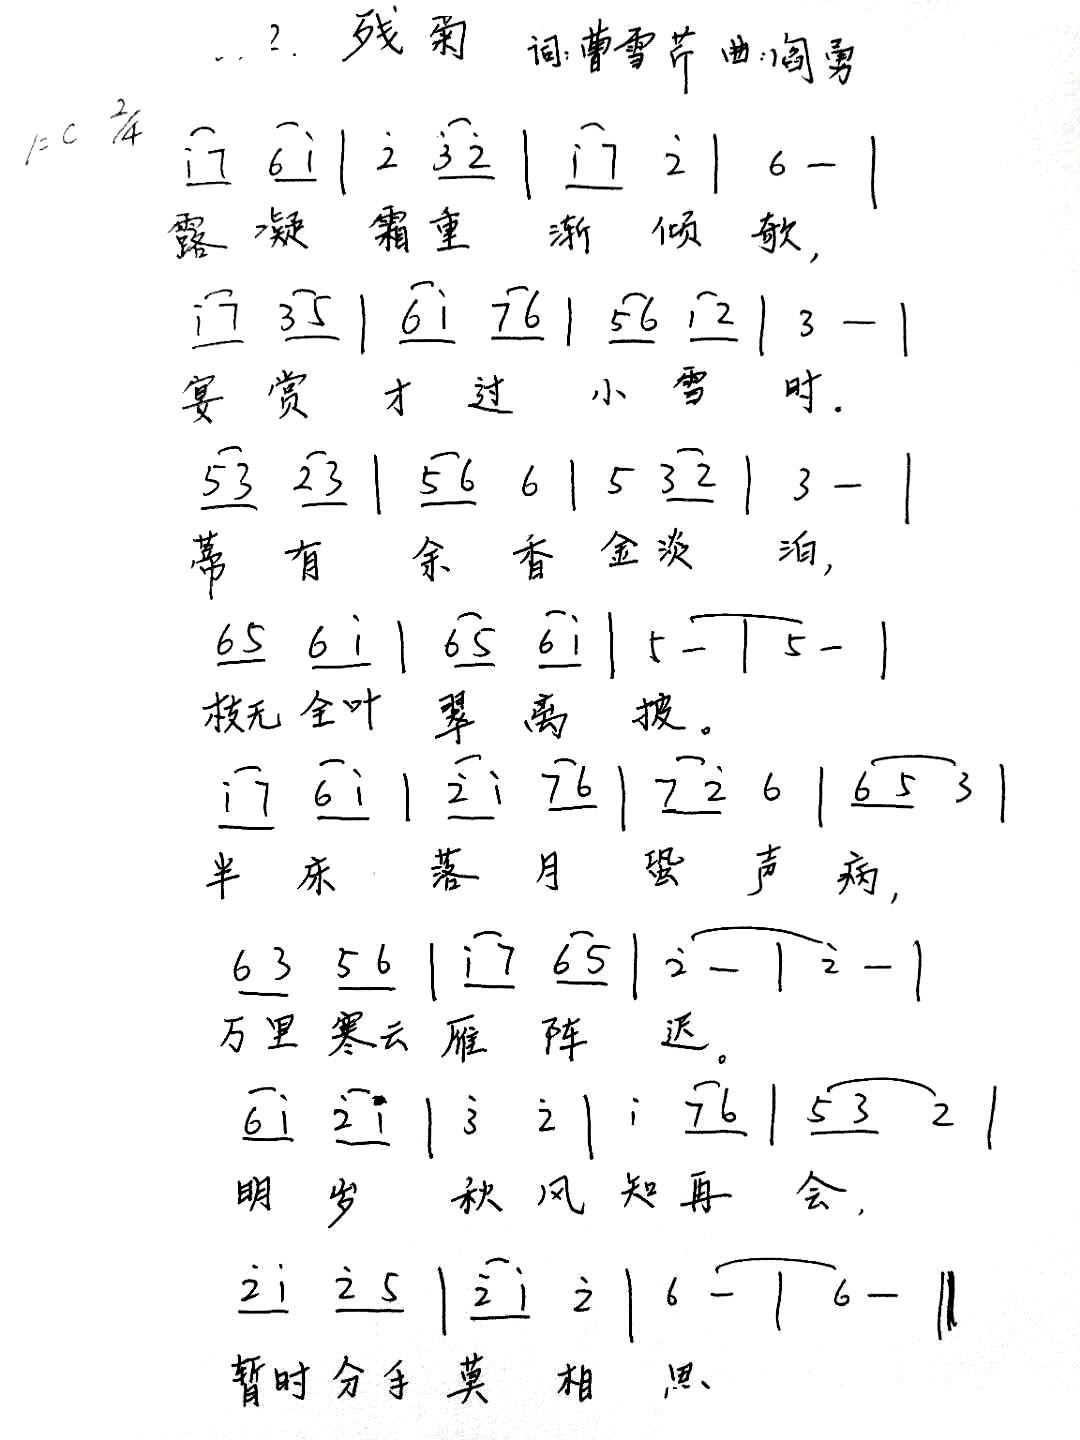 2. 残菊 词:曹雪芹 曲:阎勇
1=C 2/4
i̇7 6i̇ | 2̇ 3̇2̇ | i̇7 2̇ | 6 — |
露凝霜重渐倾欹,
i̇7 35 | 6i̇ 76 | 56 i̇2 | 3 — |
宴赏才过小雪时.
53 23 | 56 6 | 5 32 | 3 — |
蒂有余香金淡泊,
65 6i̇ | 65 6i̇ | 5 — | 5 — |
枝无全叶翠离披。
i̇7 6i̇ | 2̇i̇ 76 | 72̇ 6 | 65 3 |
半床落月蛩声病,
63 56 | i̇7 65 | 2̇ — | 2̇ — |
万里寒云雁阵迟。
6i̇ 2̇i̇ | 3̇ 2̇ | i̇ 76 | 53 2 |
明岁秋风知再会,
2̇i̇ 2̇5 | 2̇i̇ 2̇ | 6 — | 6 — ‖
暂时分手莫相思、